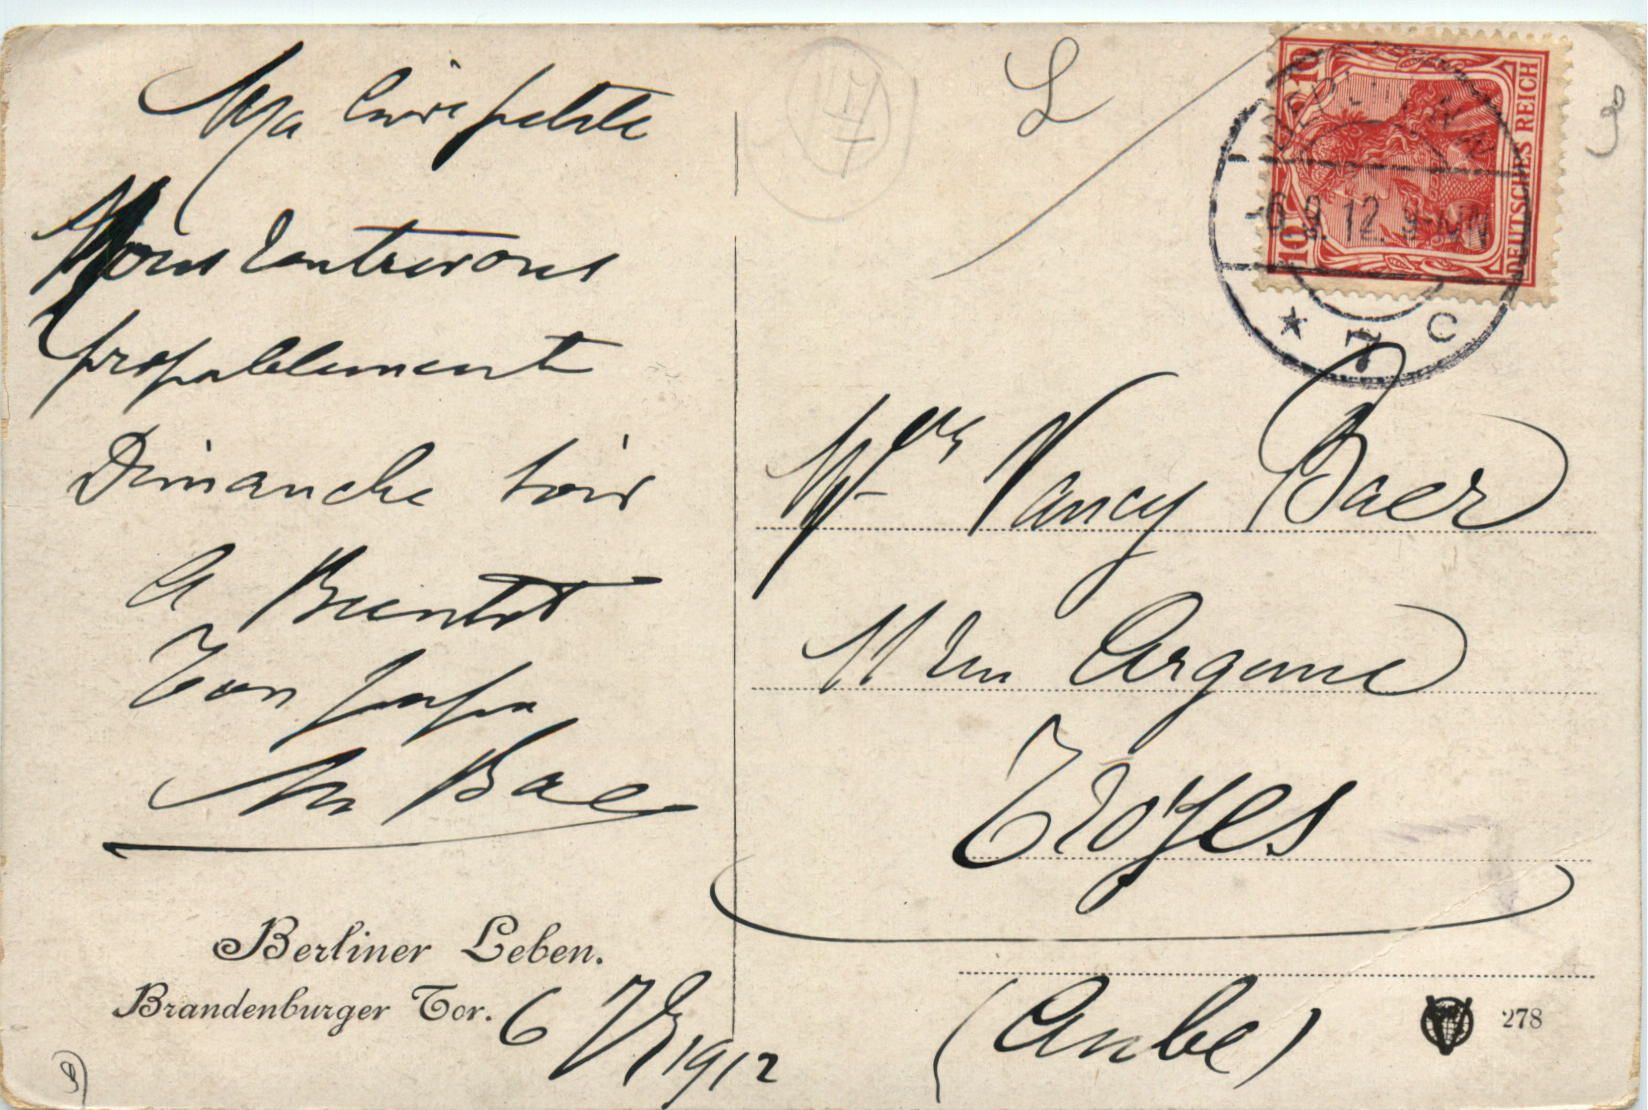 Ma chère petite
Nous rentrerons
propablement
Dimanche soir
A Bientot
Ton papa
Baer
Berliner Leben.
Brandenburger Tor.
6 7bre 1912
L
17
7
10 10
DEUTSCHES REICH
-6.9.12. 9-10N
* 7 C
Melle Nancy Baer
11 rue Argence
Troyes
(Aube)
278